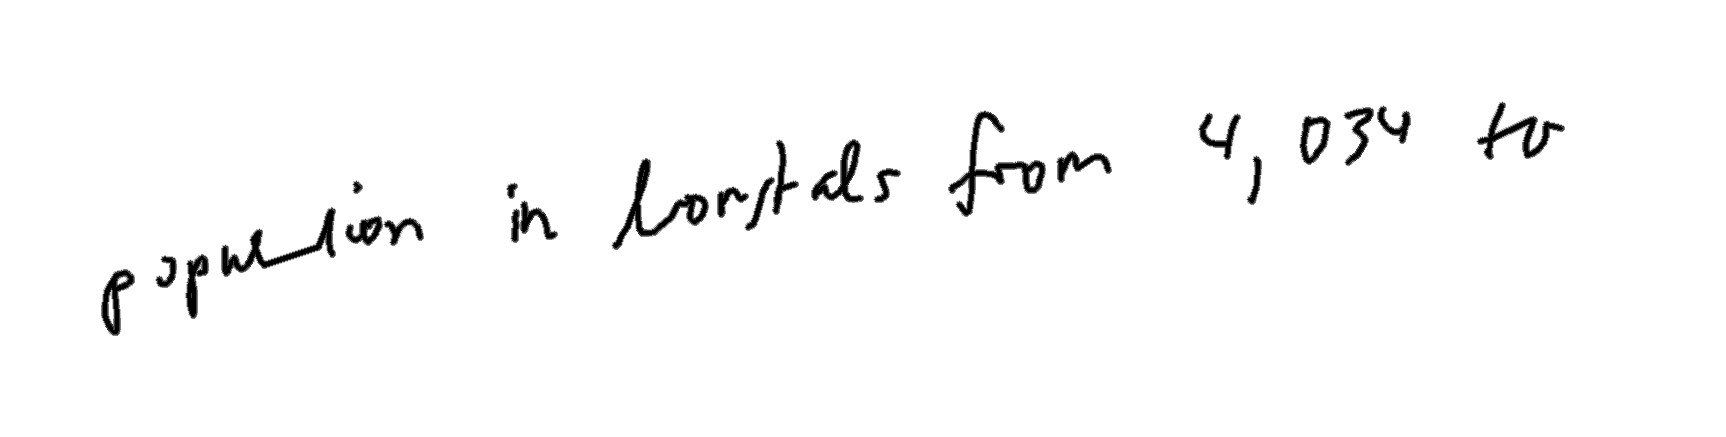 population in borstals from 4,034 to